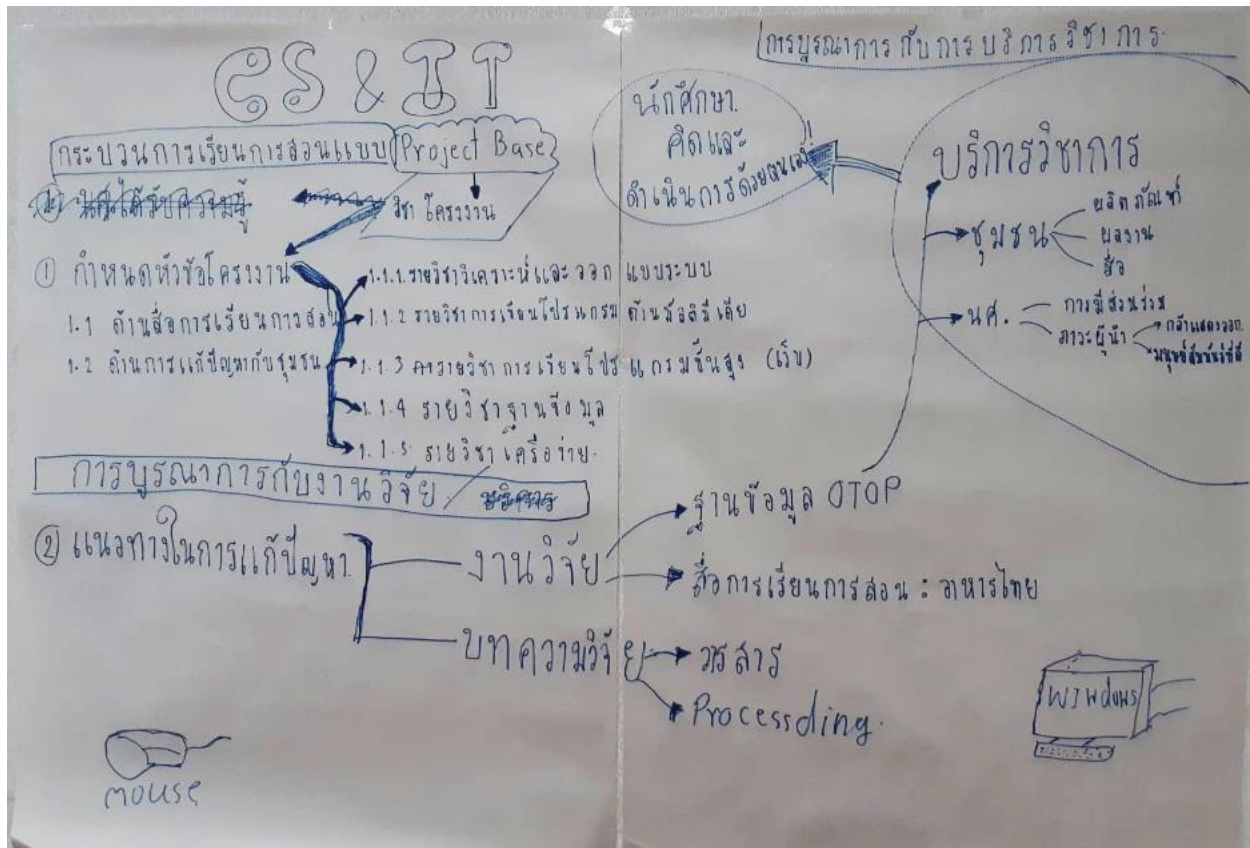 CS & IT
กระบวนการเรียนการสอนแบบ Project Base
นศ.ได้รับความรู้
วิชา โครงงาน
① กำหนดหัวข้อโครงงาน
1.1 ด้านสื่อการเรียนการสอน
1.2 ด้านการแก้ปัญหากับชุมชน
1.1.1 รายวิชาวิเคราะห์และออกแบบระบบ
1.1.2 รายวิชาการเขียนโปรแกรมด้านมัลติมีเดีย
1.1.3 รายวิชาการเขียนโปรแกรมขั้นสูง (เว็บ)
1.1.4 รายวิชาฐานข้อมูล
1.1.5 รายวิชาเครือข่าย
การบูรณาการกับงานวิจัย
② แนวทางในการแก้ปัญหา
งานวิจัย
ฐานข้อมูล OTOP
สื่อการเรียนการสอน : อาหารไทย
บทความวิจัย
วารสาร
Processding.
mouse
การบูรณาการกับการบริการวิชาการ
นักศึกษา
คิดและ
ดำเนินการด้วยตนเอง!
บริการวิชาการ
ชุมชน
ผลิตภัณฑ์
ผลงาน
สื่อ
นศ.
การมีส่วนร่วม
ภาวะผู้นำ
กล้าแสดงออก
มนุษย์สัมพันธ์ที่ดี
WINdows